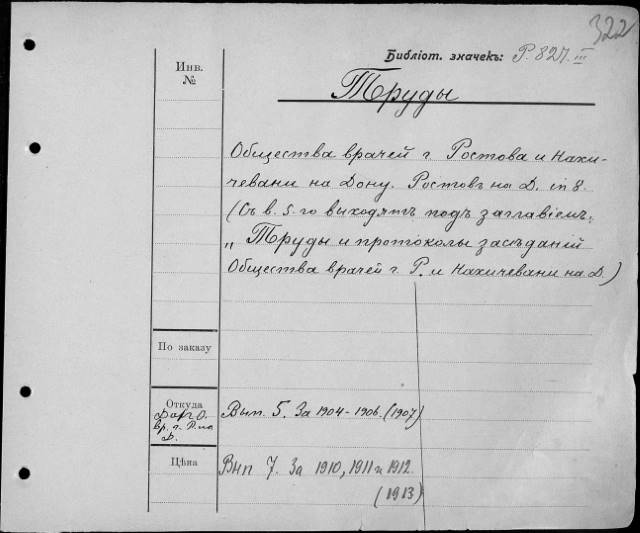 322
Библіот. значекъ: Р. 827. III
Инв.
№
Труды
Общества врачей г. Ростова и Нахи-
чевани на Дону. Ростовъ на Д. in 8.
(Съ в. 5-го выходятъ подъ заглавіемъ:
„Труды и протоколы засѣданій
Общества врачей г. Р. и Нахичевани на Д.)
По заказу
Откуда
Даръ О.
вр. г. Р. на
Д.
Вып. 5. За 1904-1906. (1907)
Цѣна
Вып 7. За 1910, 1911 и 1912.
(1913)